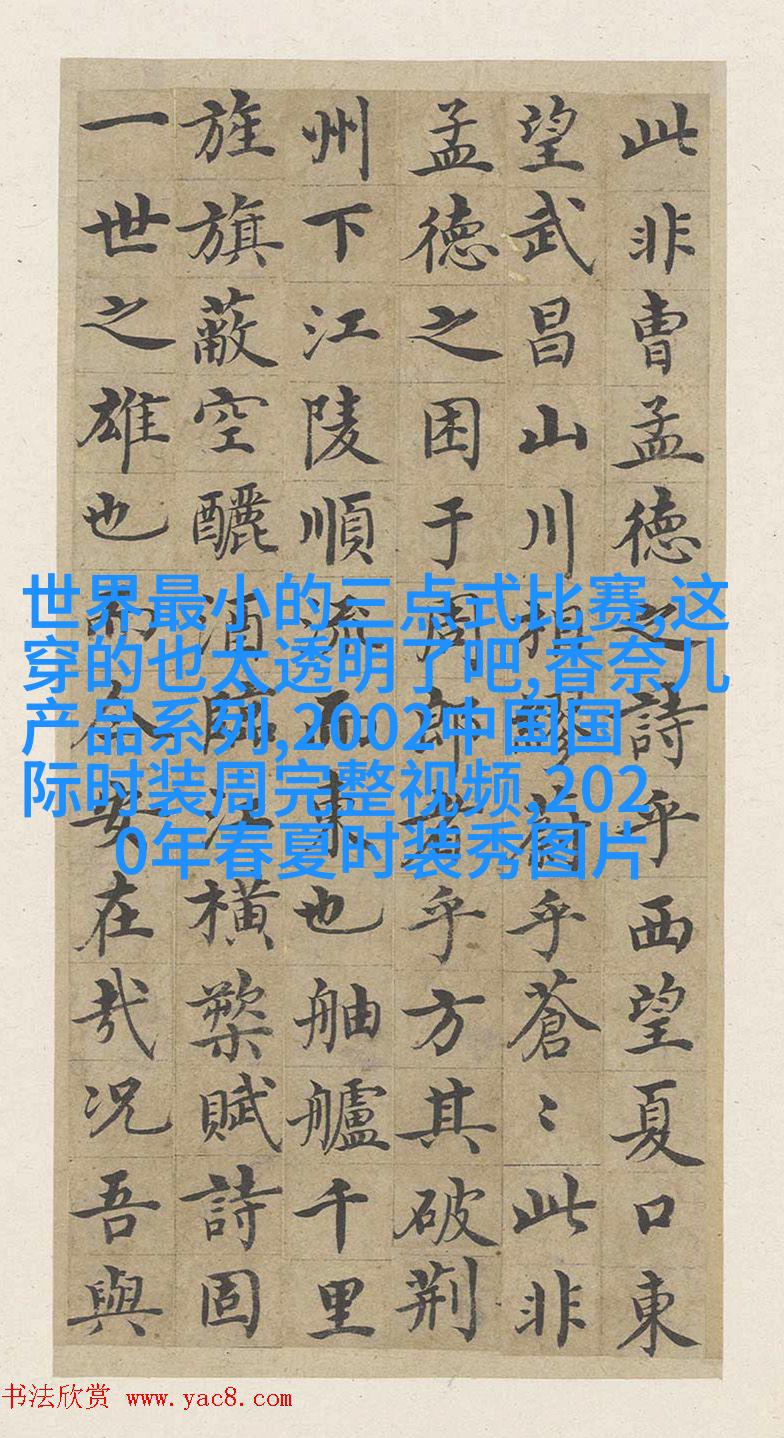 此非曹孟德之詩乎西望夏口東
望武昌山川相繆乎蒼〻此非
孟德之困于周郎者乎方其破荊
州下江陵順流而東也舳艫千里
旌旗蔽空釃酒臨江横槊賦詩固
一世之雄也而今安在哉况吾與
世界最小的三点式比赛,这
穿的也太透明了吧,香奈儿
产品系列,2002中国国
际时装周完整视频,202
0年春夏时装秀图片
书法欣赏 www.yac8.com